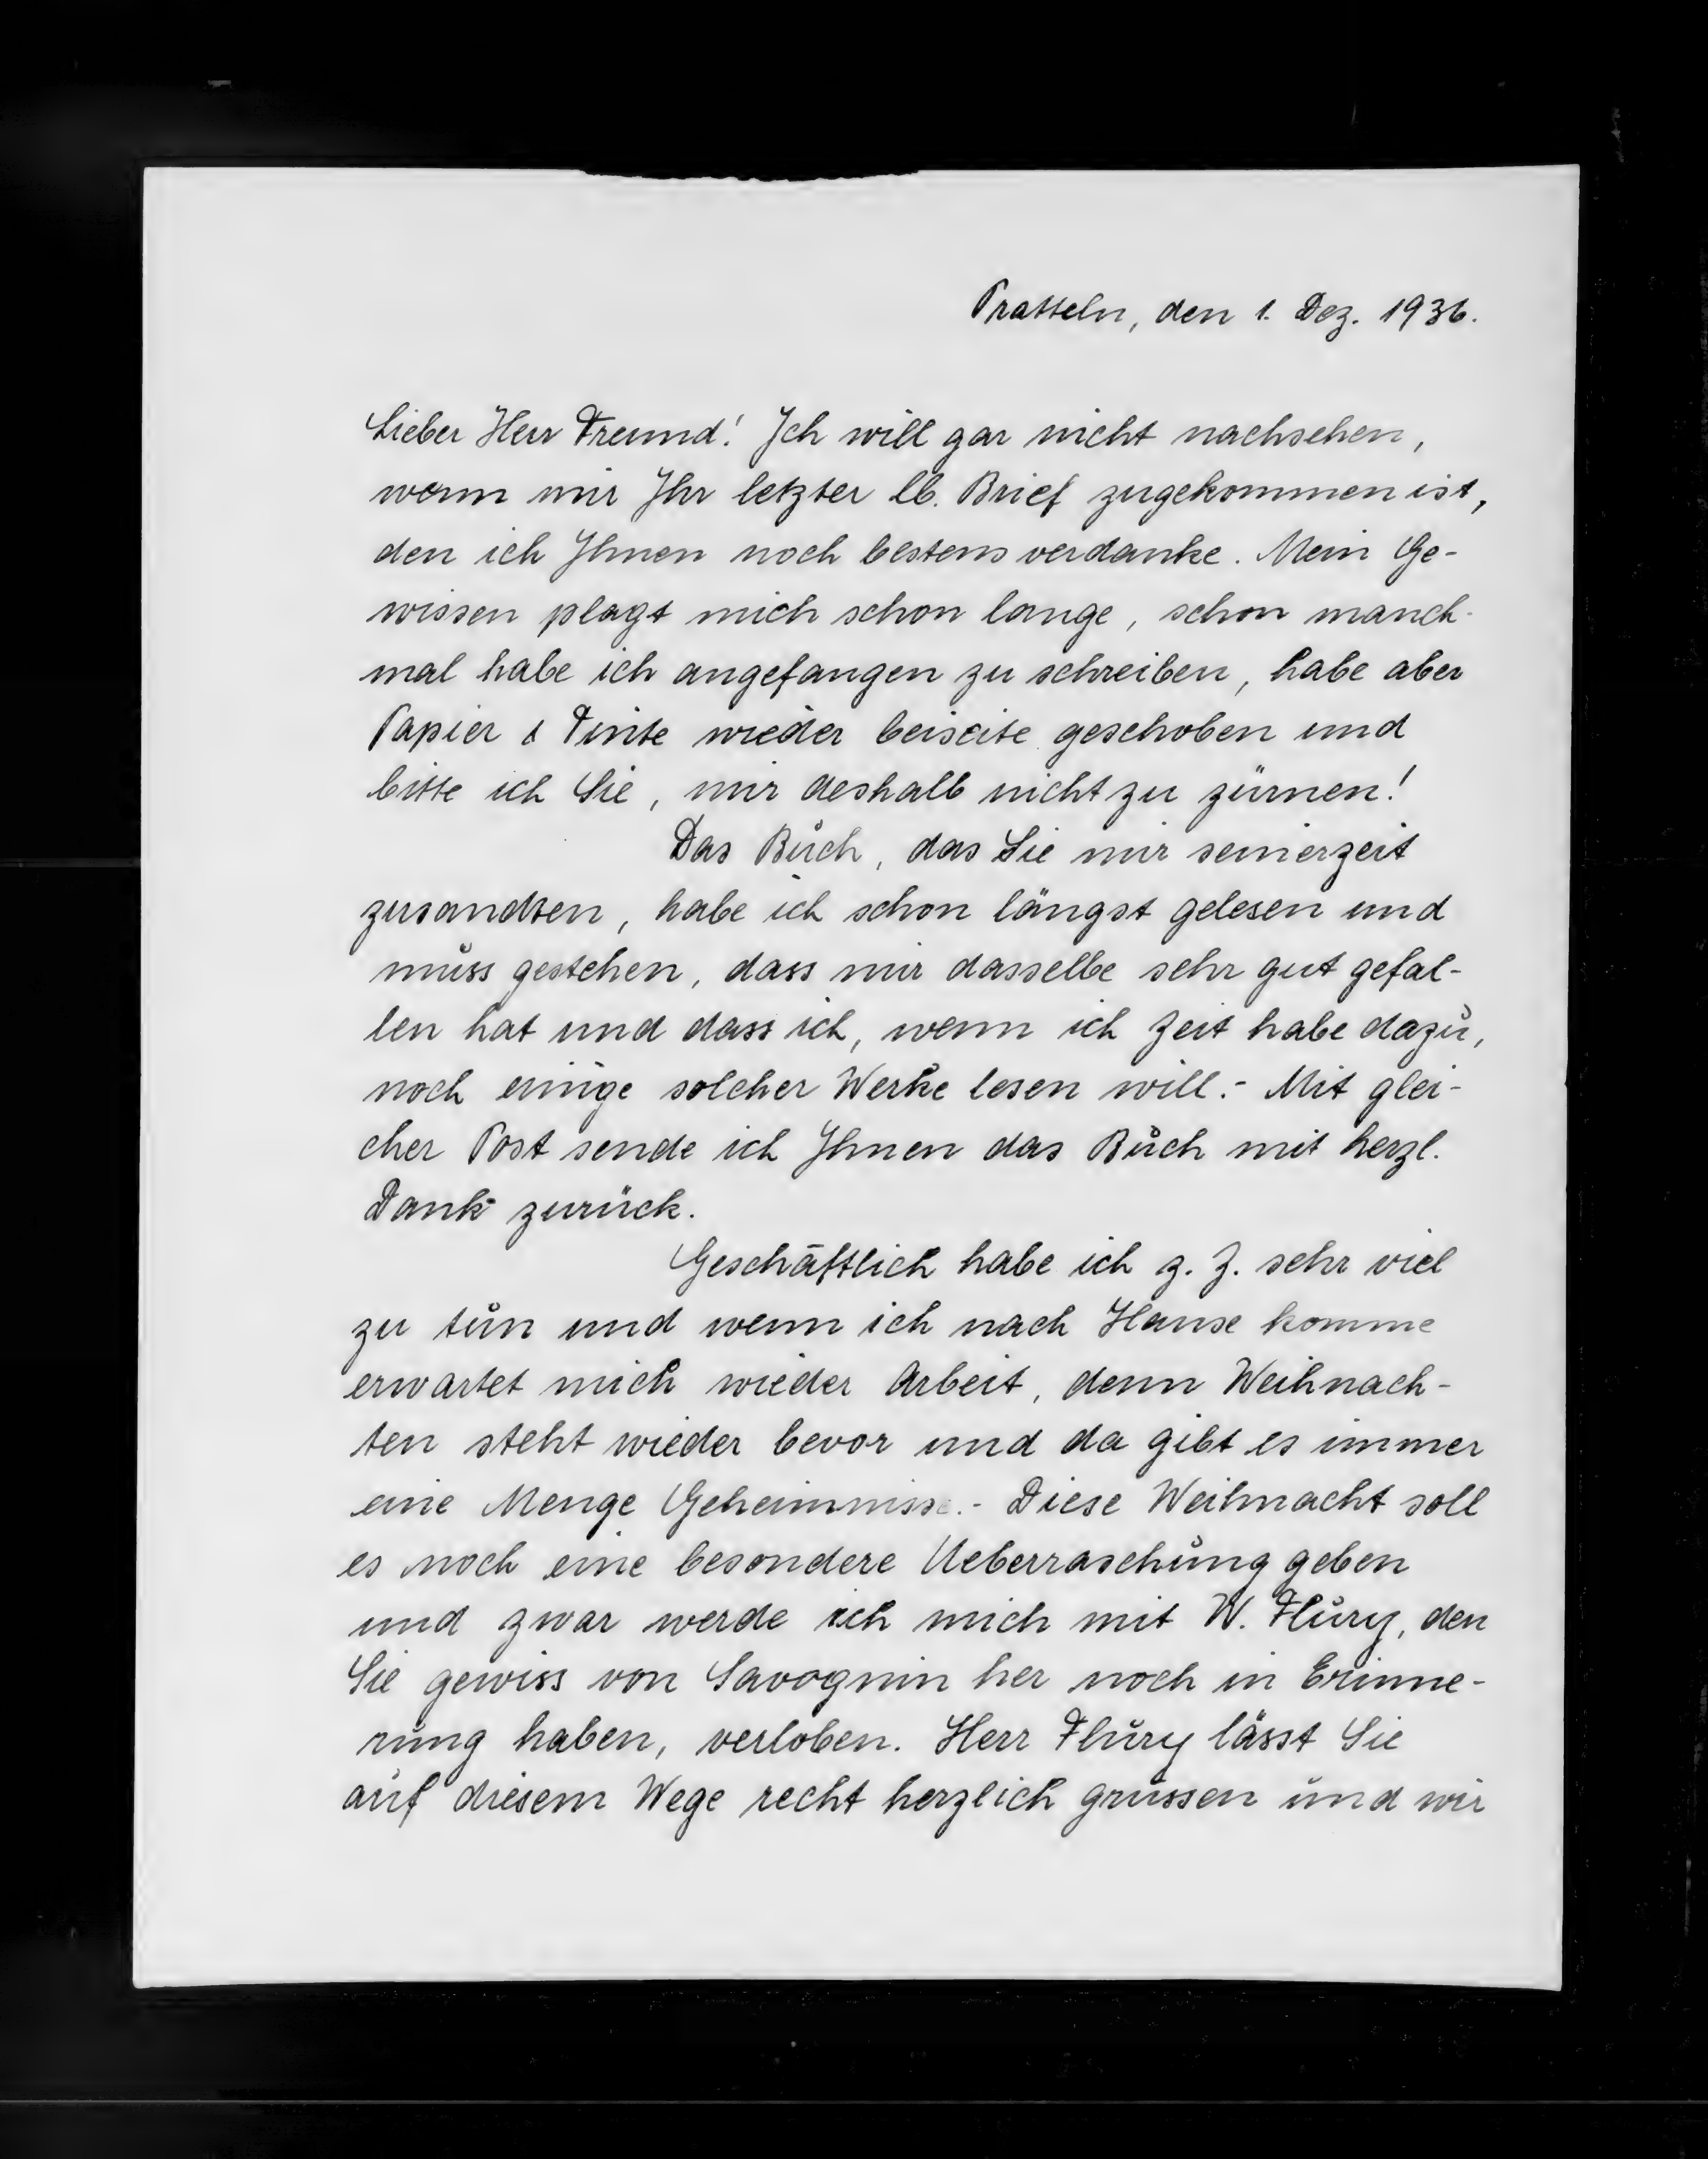 Pratteln, den 1. Dez. 1936.
Lieber Herr Freund! Ich will gar nicht nachsehen,
wann mir Ihr letzter lb. Brief zugekommen ist,
den ich Ihnen noch bestens verdanke. Mein Ge-
wissen plagt mich schon lange, schon manch-
mal habe ich angefangen zu schreiben, habe aber
Papier & Tinte wieder beiseite geschoben und
bitte ich Sie, mir deshalb nicht zu zürnen!
Das Buch, das Sie mir seinerzeit
zusandten, habe ich schon längst gelesen und
muss gestehen, dass mir dasselbe sehr gut gefal-
len hat und dass ich, wenn ich Zeit habe dazu,
noch einige solcher Werke lesen will.- Mit glei-
cher Post sende ich Ihnen das Buch mit herzl.
Dank zurück.
Geschäftlich habe ich z. Z. sehr viel
zu tun und wenn ich nach Hause komme
erwartet mich wieder Arbeit, denn Weihnach-
ten steht wieder bevor und da gibt es immer
eine Menge Geheimnisse.- Diese Weihnacht soll
es noch eine besondere Ueberraschung geben
und zwar werde ich mich mit W. Flury, den
Sie gewiss von Savognin her noch in Erinne-
rung haben, verloben. Herr Flury lässt Sie
auf diesem Wege recht herzlich grüssen und wir